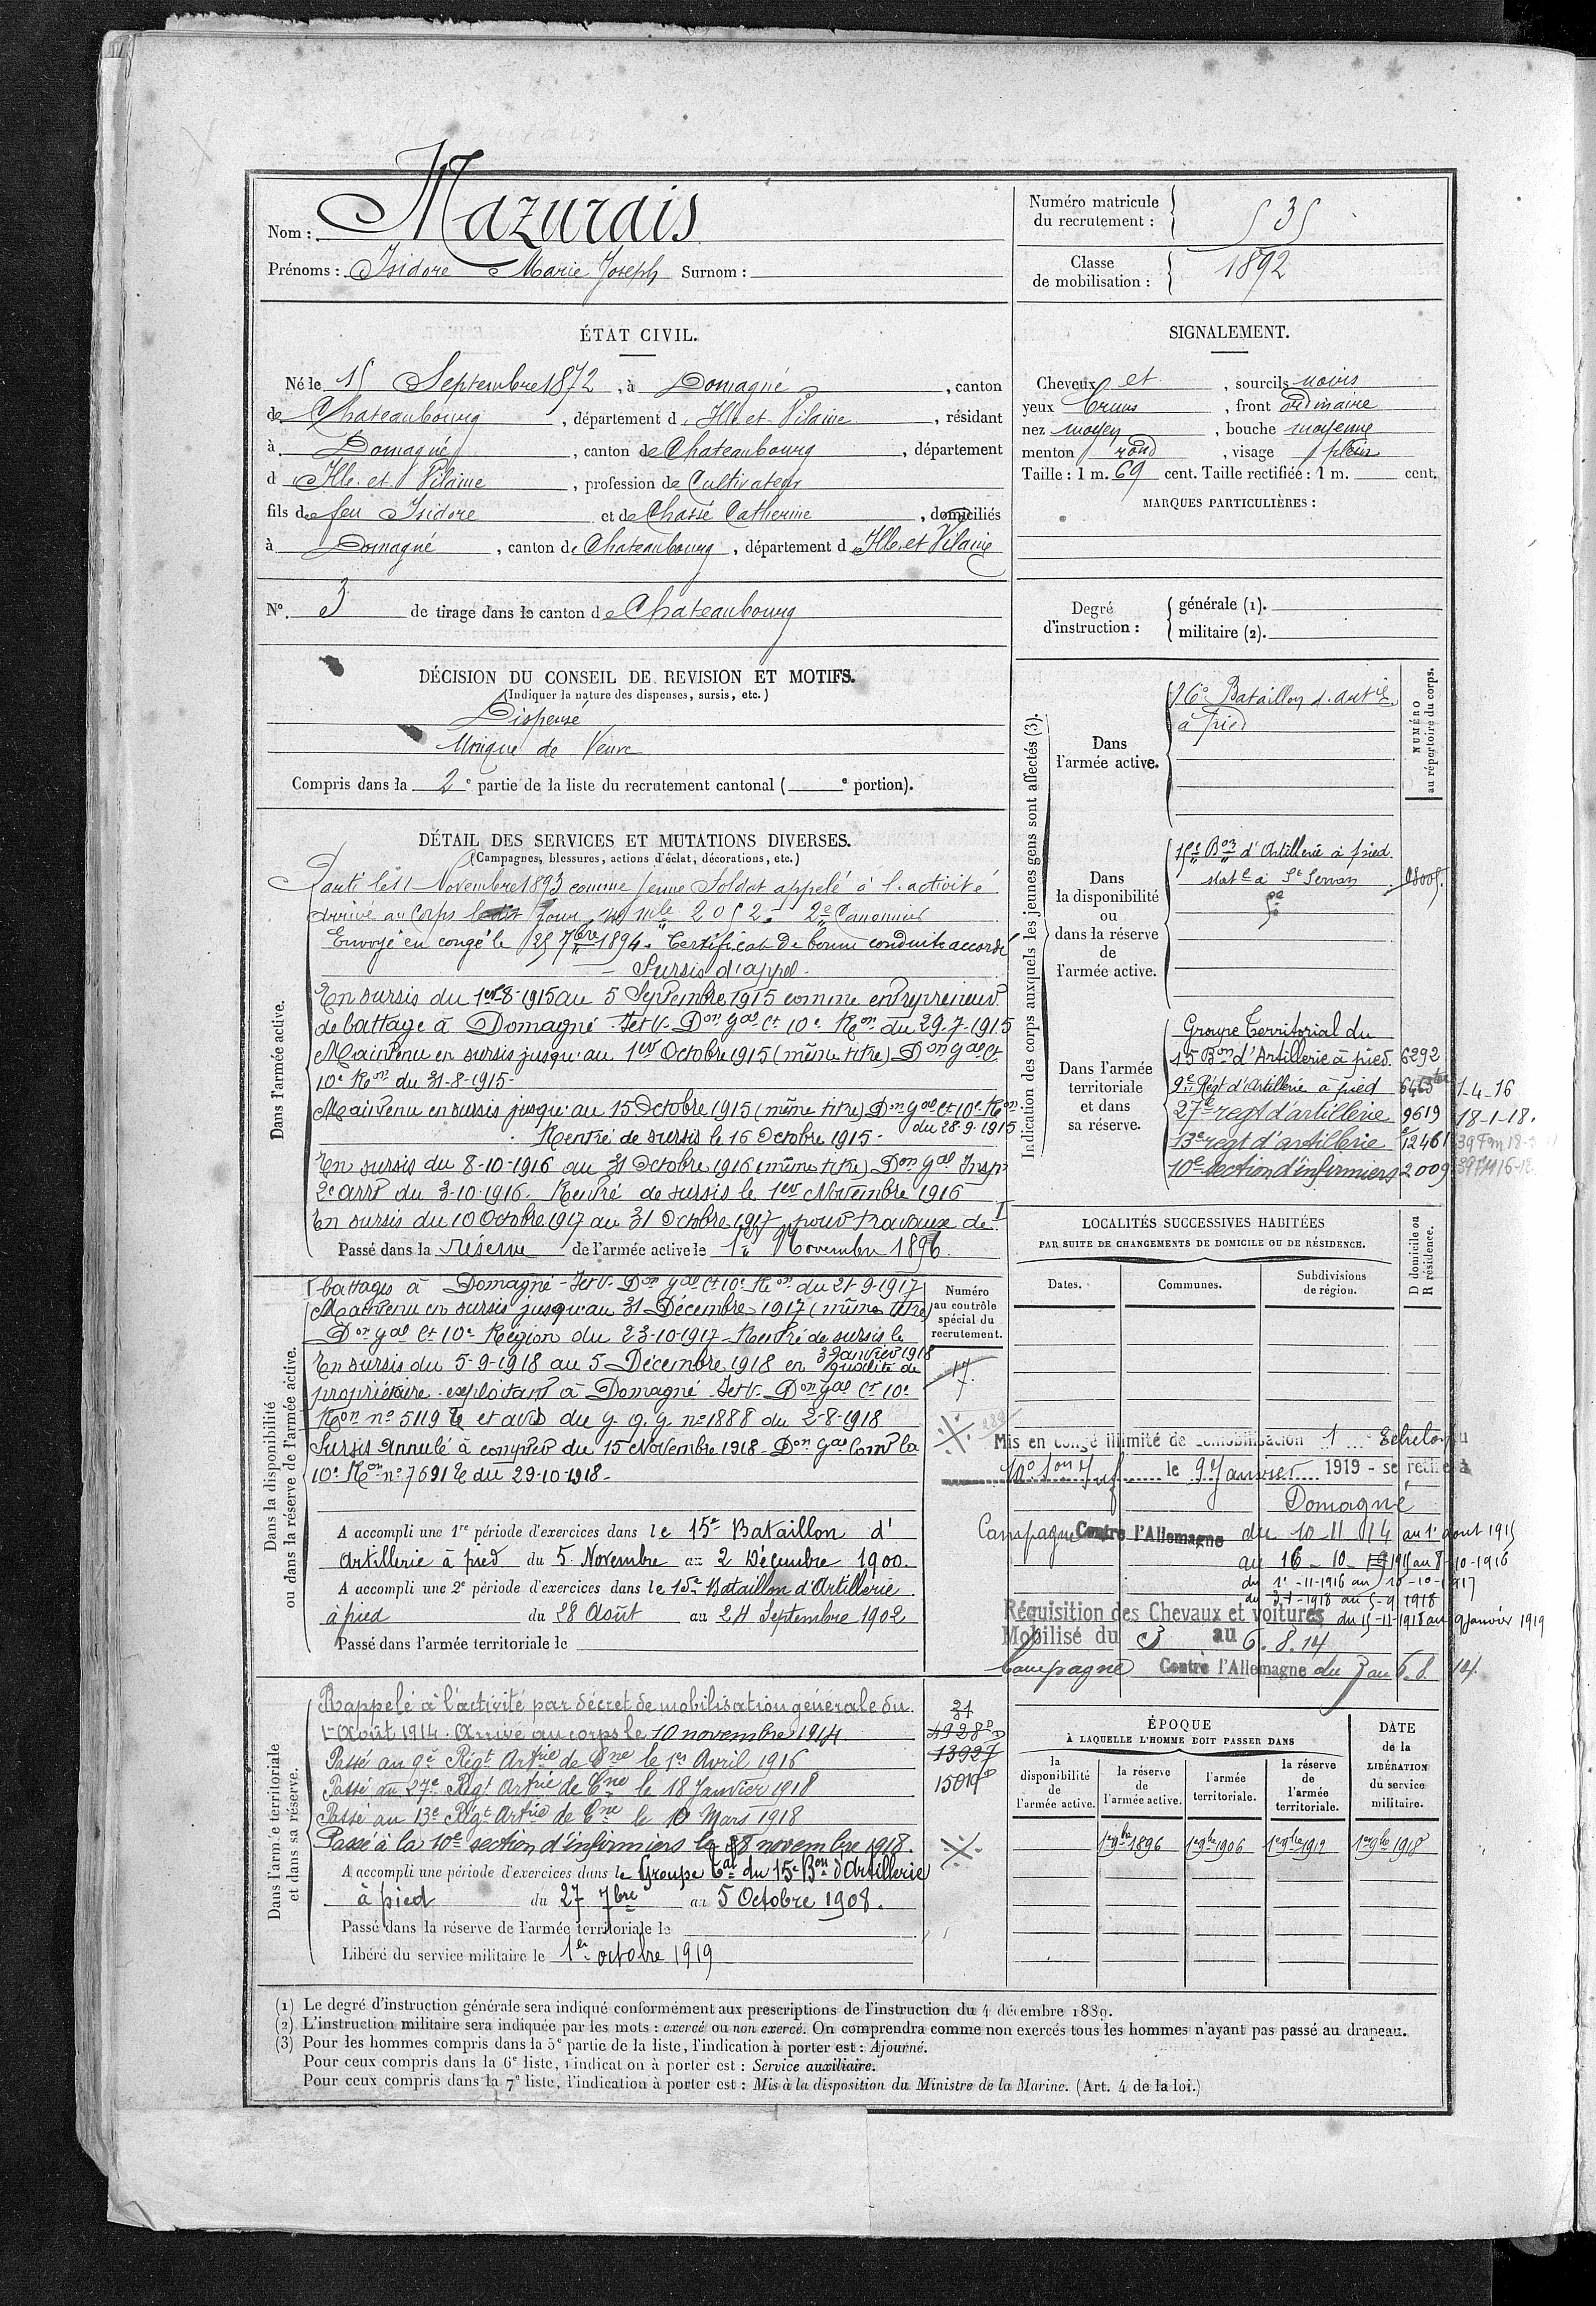 Nom : Mazurais
Prénoms : Isidore Marie Joseph Surnom :
Numéro matricule du recrutement : 535
Classe de mobilisation : 1892
ÉTAT CIVIL.
Né le 15 Septembre 1872, à Domagné, canton
de Chateaubourg, département d'Ille-et-Vilaine, résidant
à Domagné, canton de Chateaubourg, département
d'Ille-et-Vilaine, profession de Cultivateur
fils de feu Isidore et de Chassé Catherine, domiciliés
à Domagné, canton de Chateaubourg, département d'Ille et Vilaine
N° 3 de tirage dans le canton de Chateaubourg
SIGNALEMENT.
Cheveux et, sourcils noirs
yeux bruns, front ordinaire
nez moyen, bouche moyenne
menton rond, visage plein
Taille : 1 m. 69 cent. Taille rectifiée : 1 m. cent.
MARQUES PARTICULIÈRES :
Degré d'instruction : générale (1).
militaire (2).
DÉCISION DU CONSEIL DE REVISION ET MOTIFS.
(Indiquer la nature des dispenses, sursis, etc.)
Dispensé
Unique de Veuve
Compris dans la 2e partie de la liste du recrutement cantonal ( e portion).
DÉTAIL DES SERVICES ET MUTATIONS DIVERSES.
(Campagnes, blessures, actions d'éclat, décorations, etc.)
Dans l'armée active.
Parti le 11 Novembre 1893 comme jeune Soldat appelé à l'activité
Arrivé au Corps ledit jour, n° mle 2052. 2e Canonnier
Envoyé en congé le 25 7bre 1894. Certificat de bonne conduite accordé
Sursis d'appel.
En sursis du 1er-8-1915 au 5 Septembre 1915 comme entrepreneur
de battage à Domagné - I et V. Don Gale Ct 10e Ron du 29-7-1915
Maintenu en sursis jusqu'au 1er Octobre 1915 (même titre) Don Gale Ct
10e Ron du 31-8-1915-
Maintenu en sursis jusqu'au 15 Octobre 1915 (même titre) Don Gale Ct 10e Ron
du 28-9-1915
Rentré de sursis le 16 Octobre 1915-
En sursis du 8-10-1916 au 31 Octobre 1916 (même titre) Don Gal Insp
2e arrt du 3-10-1916. Rentré de sursis le 1er Novembre 1916
En sursis du 10 Octobre 1917 au 31 Octobre 1917 pour travaux de I
Passé dans la réserve de l'armée active le 1er Novembre 1896.
Dans la disponibilité ou dans la réserve de l'armée active.
I battages à Domagné - I et V. Don Gale Ct 10e Ron du 21-9-1917
Maintenu en sursis jusqu'au 31 Décembre 1917 (même titre)
Don Gale Ct 10e Région du 23-10-1917 - Rentré de sursis le
3 Janvier 1918
En sursis du 5-9-1918 au 5 Décembre 1918 en qualité de
propriétaire exploitant à Domagné - I et V. Don Gale Ct 10e
Ron n° 5119 E et avis du G.Q.G. n° 1888 du 2-8-1918
Sursis annulé à compter du 15 Novembre 1918 - Don Gale Comt la
10e Ron n° 7691 E du 29-10-1918-
A accompli une 1re période d'exercices dans le 15e Bataillon d'
Artillerie à pied du 5 Novembre au 2 Décembre 1900.
A accompli une 2e période d'exercices dans le 15e Bataillon d'Artillerie
à pied du 28 Août au 24 Septembre 1902
Passé dans l'armée territoriale le
Numéro au contrôle spécial du recrutement.
17
Dans l'armée territoriale et dans sa réserve.
Rappelé à l'activité par décret de mobilisation générale du
1er Août 1914. Arrivé au corps le 10 novembre 1914.
Passé au 9e Régt Artrie de Cne le 1er Avril 1916
Passé au 27e Régt Artrie de Cne le 18 Janvier 1918
Passé au 13e Régt Artrie de Cne le 10 Mars 1918
Passé à la 10e section d'infirmiers le 18 novembre 1918.
A accompli une période d'exercices dans le Groupe Tal du 15e Bon d'Artillerie
à pied du 27 7bre au 5 Octobre 1908.
Passé dans la réserve de l'armée territoriale le
Libéré du service militaire le 1er octobre 1919
31
4928
13927
15019
Indication des corps auxquels les jeunes gens sont affectés (3).
NUMÉRO au répertoire du corps.
Dans l'armée active.
16e Bataillon d'artie
à pied
Dans la disponibilité ou dans la réserve de l'armée active.
15e Bon d'Artillerie à pied.
statle à St Servan
Dans l'armée territoriale et dans sa réserve.
Groupe Territorial du
15 Bon d'Artillerie à pied. 6292
9e Régt d'Artillerie à pied 1-4-16
27e regt d'artillerie 9619 18-1-18.
13e regt d'artillerie 12461
10e section d'infirmiers 2009
LOCALITÉS SUCCESSIVES HABITÉES
PAR SUITE DE CHANGEMENTS DE DOMICILE OU DE RÉSIDENCE.
Dates. Communes. Subdivisions de région. D domicile ou R résidence.
Mis en congé illimité de démobilisation 1 Echelon du
10e Son Inf le 9 Janvier 1919 - se retire à
Domagné
Campagne Contre l'Allemagne du 10-11-14 au 1er aout 1915
au 16-10-1915 au 8-10-1916
du 1er-11-1916 au 10-10-1917
du 3-1-1918 au 5-9-1918
du 15-11-1918 au 9 janvier 1919
Réquisition des Chevaux et voitures
Mobilisé du 3 au 6.8.14
Campagne Contre l'Allemagne du 3 au 6.8.14.
ÉPOQUE
À LAQUELLE L'HOMME DOIT PASSER DANS
la disponibilité de l'armée active. la réserve de l'armée active. l'armée territoriale. la réserve de l'armée territoriale.
DATE de la LIBÉRATION du service militaire.
1er 9bre 1896 1er 9bre 1906 1er 9bre 1912 1er 9bre 1918
(1) Le degré d'instruction générale sera indiqué conformément aux prescriptions de l'instruction du 4 décembre 1889.
(2) L'instruction militaire sera indiquée par les mots : exercé ou non exercé. On comprendra comme non exercés tous les hommes n'ayant pas passé au drapeau.
(3) Pour les hommes compris dans la 5e partie de la liste, l'indication à porter est : Ajourné.
Pour ceux compris dans la 6e liste, l'indication à porter est : Service auxiliaire.
Pour ceux compris dans la 7e liste, l'indication à porter est : Mis à la disposition du Ministre de la Marine. (Art. 4 de la loi.)